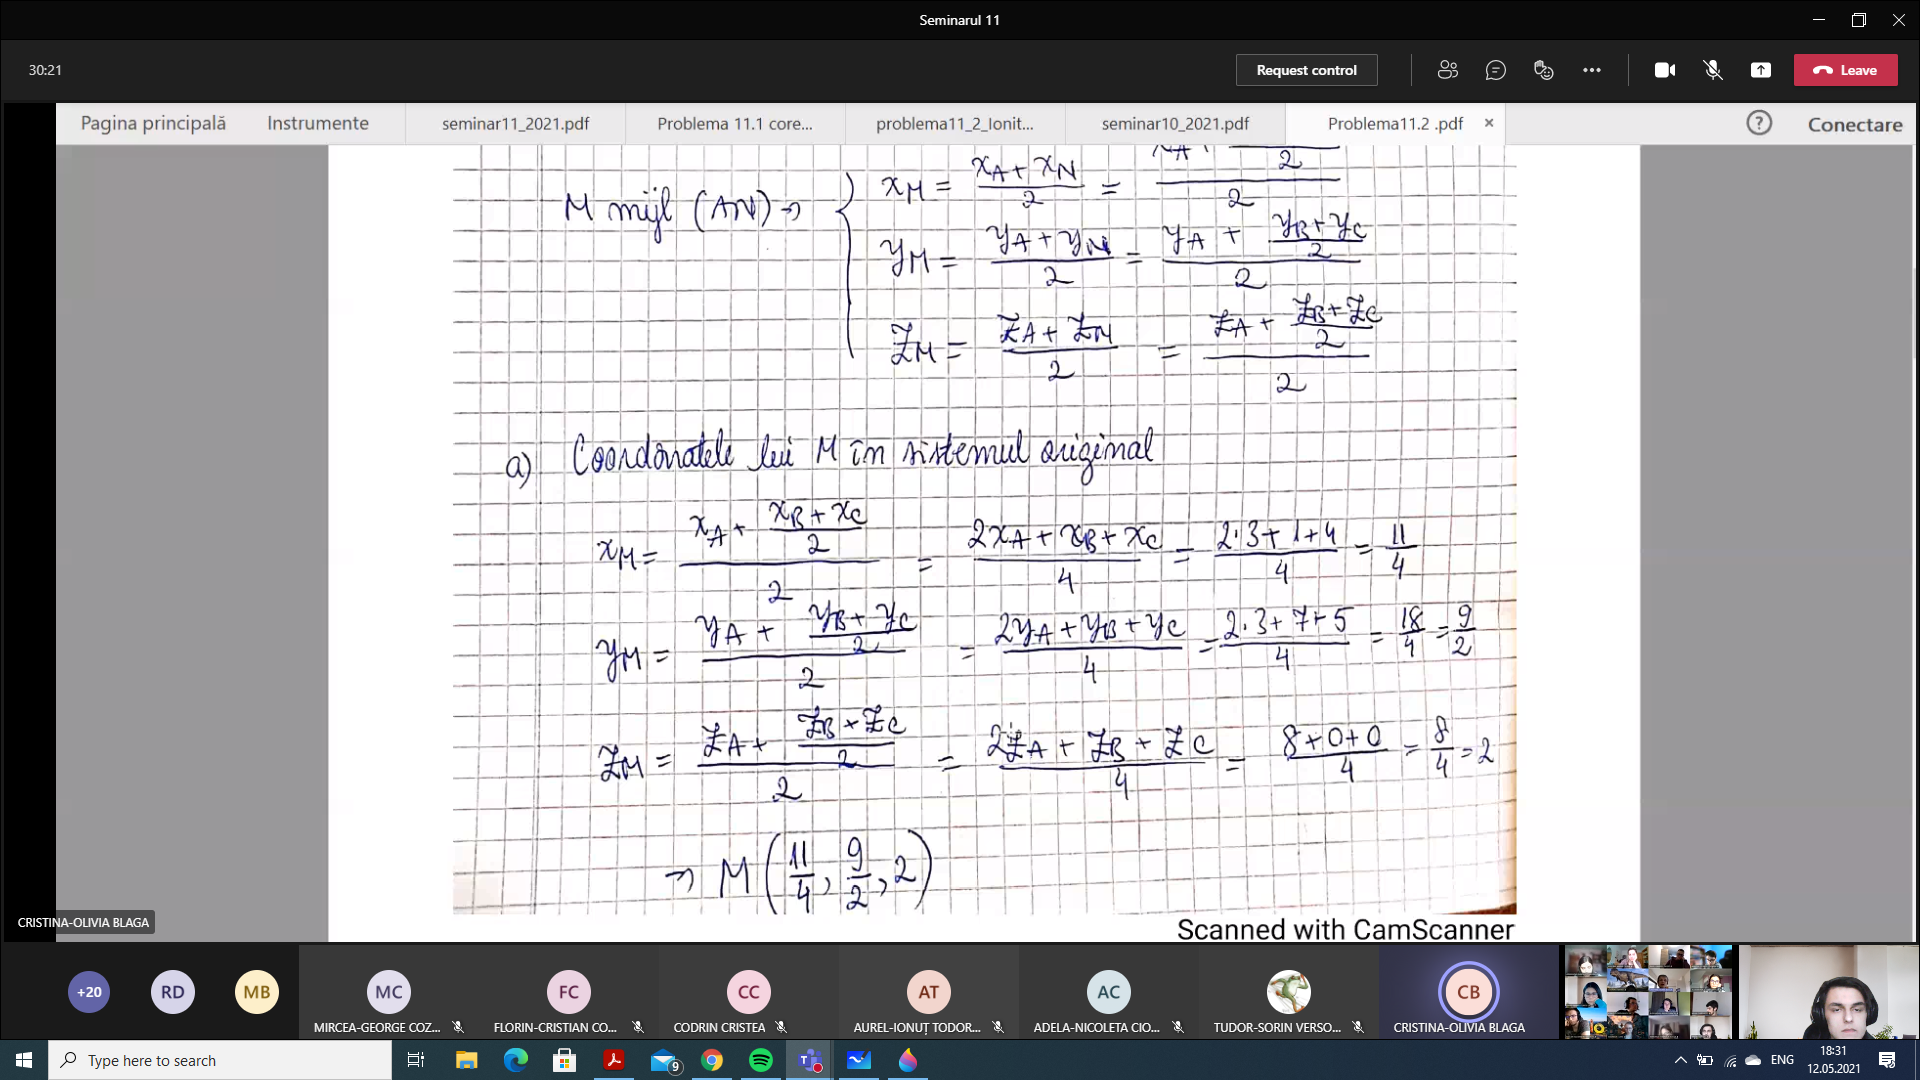 Seminarul 11
30:21
Request control
Leave
Pagina principală Instrumente seminar11_2021.pdf Problema 11.1 core... problema11_2_Ionit... seminar10_2021.pdf Problema11.2 .pdf × ? Conectare
M mijl (AN) ⇒ { x_M = (x_A + x_N)/2 = (x_A + /2)/2
y_M = (y_A + y_N)/2 = (y_A + (y_B + y_C)/2)/2
z_M = (z_A + z_N)/2 = (z_A + (z_B + z_C)/2)/2
a) Coordonatele lui M în sistemul original
x_M = (x_A + (x_B + x_C)/2)/2 = (2x_A + x_B + x_C)/4 = (2·3 + 1 + 4)/4 = 11/4
y_M = (y_A + (y_B + y_C)/2)/2 = (2y_A + y_B + y_C)/4 = (2·3 + 7 + 5)/4 = 18/4 = 9/2
z_M = (z_A + (z_B + z_C)/2)/2 = (2z_A + z_B + z_C)/4 = (8 + 0 + 0)/4 = 8/4 = 2
⇒ M (11/4, 9/2, 2)
Scanned with CamScanner
CRISTINA-OLIVIA BLAGA
+20 RD MB MC FC CC AT AC CB
MIRCEA-GEORGE COZ... FLORIN-CRISTIAN CO... CODRIN CRISTEA AUREL-IONUȚ TODOR... ADELA-NICOLETA CIO... TUDOR-SORIN VERSO... CRISTINA-OLIVIA BLAGA
Type here to search
9
ENG
18:31
12.05.2021